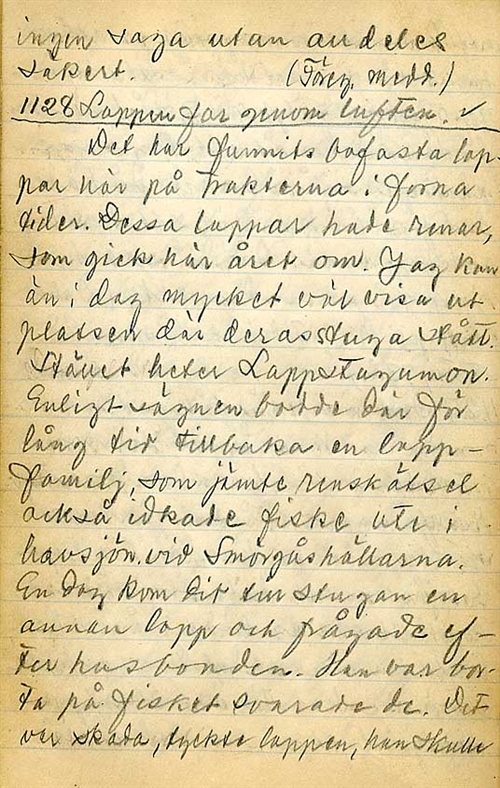 ingen saga utan andeles
säkert. (Föreg. medd.)
1128 Lappen far genom luften. ✓
Det har funnits bofasta lap-
par här på trakterna i forna
tider. Dessa lappar hade renar,
som gick här året om. Jag kan
än i dag mycket väl visa ut
platsen där deras stuga stått.
Stället heter Lappstugumon.
Enligt sägnen bodde där för
lång tid tillbaka en lapp-
familj, som jämte renskötsel
också idkade fiske ute i
havsjön vid Smörgåshällarna.
En dag kom dit till stugan en
annan lapp och frågade ef-
ter husbonden. Han var bor-
ta på fisket svarade de. Det
var skada, tyckte lappen, han skulle